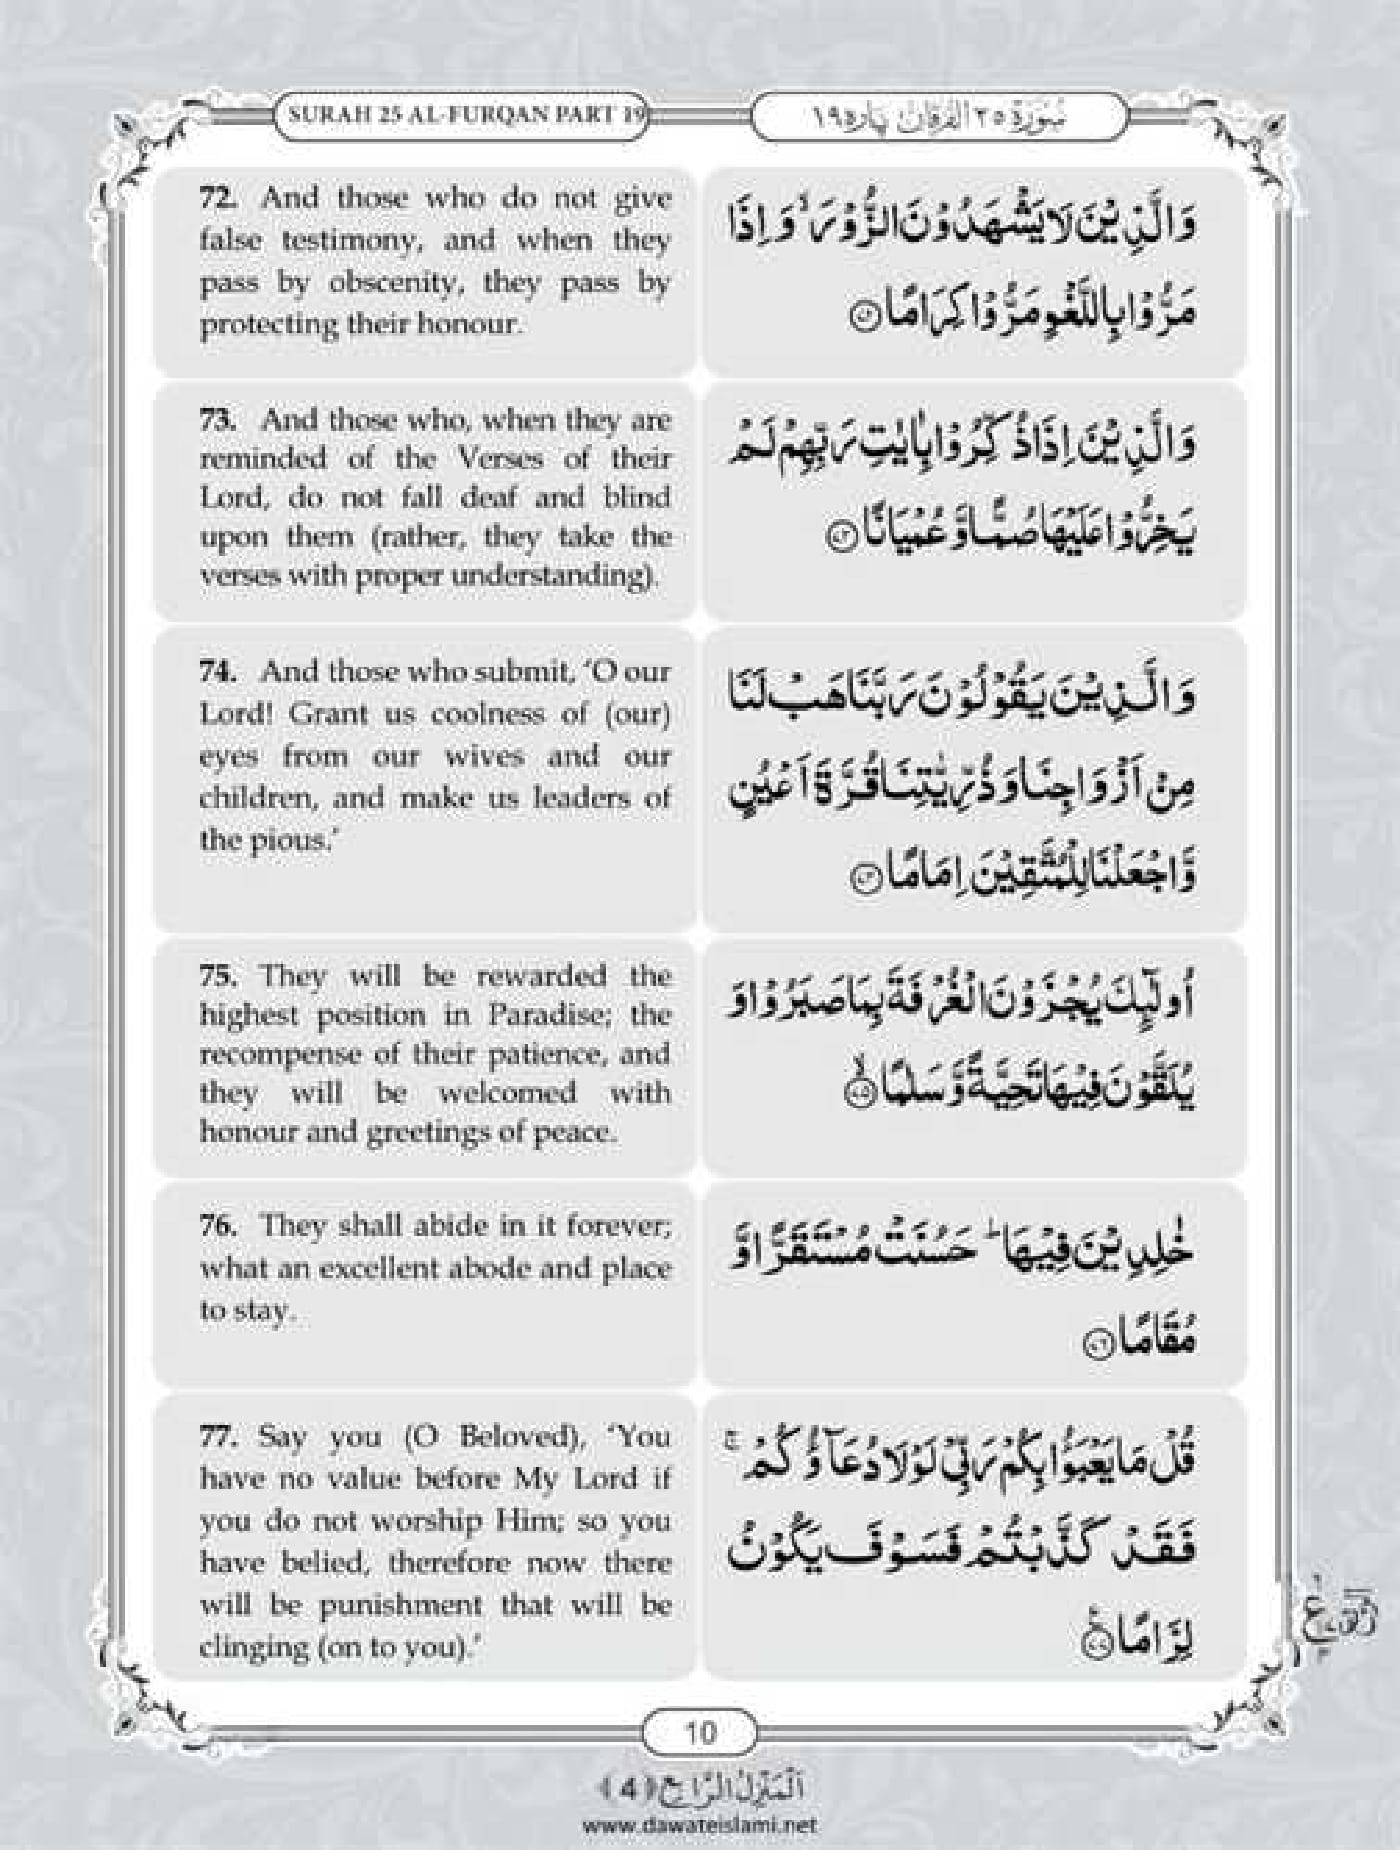 SURAH 25 AL-FURQAN PART 19
سُوْرَةُ ٢٥ اَلْفُرْقَانُ پاره ١٩
72. And those who do not give
false testimony, and when they
pass by obscenity, they pass by
protecting their honour.
وَالَّذِيْنَ لَا يَشْهَدُوْنَ الزُّوْرَ ۙ وَ اِذَا
مَرُّوْا بِاللَّغْوِ مَرُّوْا كِرَامًا ﴿۷۲﴾
73. And those who, when they are
reminded of the Verses of their
Lord, do not fall deaf and blind
upon them (rather, they take the
verses with proper understanding).
وَالَّذِيْنَ اِذَا ذُكِّرُوْا بِاٰيٰتِ رَبِّهِمْ لَمْ
يَخِرُّوْا عَلَيْهَا صُمًّا وَّ عُمْيَانًا ﴿۷۳﴾
74. And those who submit, ‘O our
Lord! Grant us coolness of (our)
eyes from our wives and our
children, and make us leaders of
the pious.’
وَالَّذِيْنَ يَقُوْلُوْنَ رَبَّنَا هَبْ لَنَا
مِنْ اَزْوَاجِنَا وَ ذُرِّيّٰتِنَا قُرَّةَ اَعْيُنٍ
وَّ اجْعَلْنَا لِلْمُتَّقِيْنَ اِمَامًا ﴿۷۴﴾
75. They will be rewarded the
highest position in Paradise; the
recompense of their patience, and
they will be welcomed with
honour and greetings of peace.
اُولٰٓئِكَ يُجْزَوْنَ الْغُرْفَةَ بِمَا صَبَرُوْا وَ
يُلَقَّوْنَ فِيْهَا تَحِيَّةً وَّ سَلٰمًا ﴿ۙ۷۵﴾
76. They shall abide in it forever;
what an excellent abode and place
to stay.
خٰلِدِيْنَ فِيْهَا ؕ حَسُنَتْ مُسْتَقَرًّا وَّ
مُقَامًا ﴿۷۶﴾
77. Say you (O Beloved), ‘You
have no value before My Lord if
you do not worship Him; so you
have belied, therefore now there
will be punishment that will be
clinging (on to you).’
قُلْ مَا يَعْبَؤُا بِكُمْ رَبِّيْ لَوْ لَا دُعَآؤُكُمْ ۚ
فَقَدْ كَذَّبْتُمْ فَسَوْفَ يَكُوْنُ
لِزَامًا ﴿۷۷﴾
10
اَلْمَنْزِلُ الرَّابِع ﴿4﴾
www.dawateislami.net